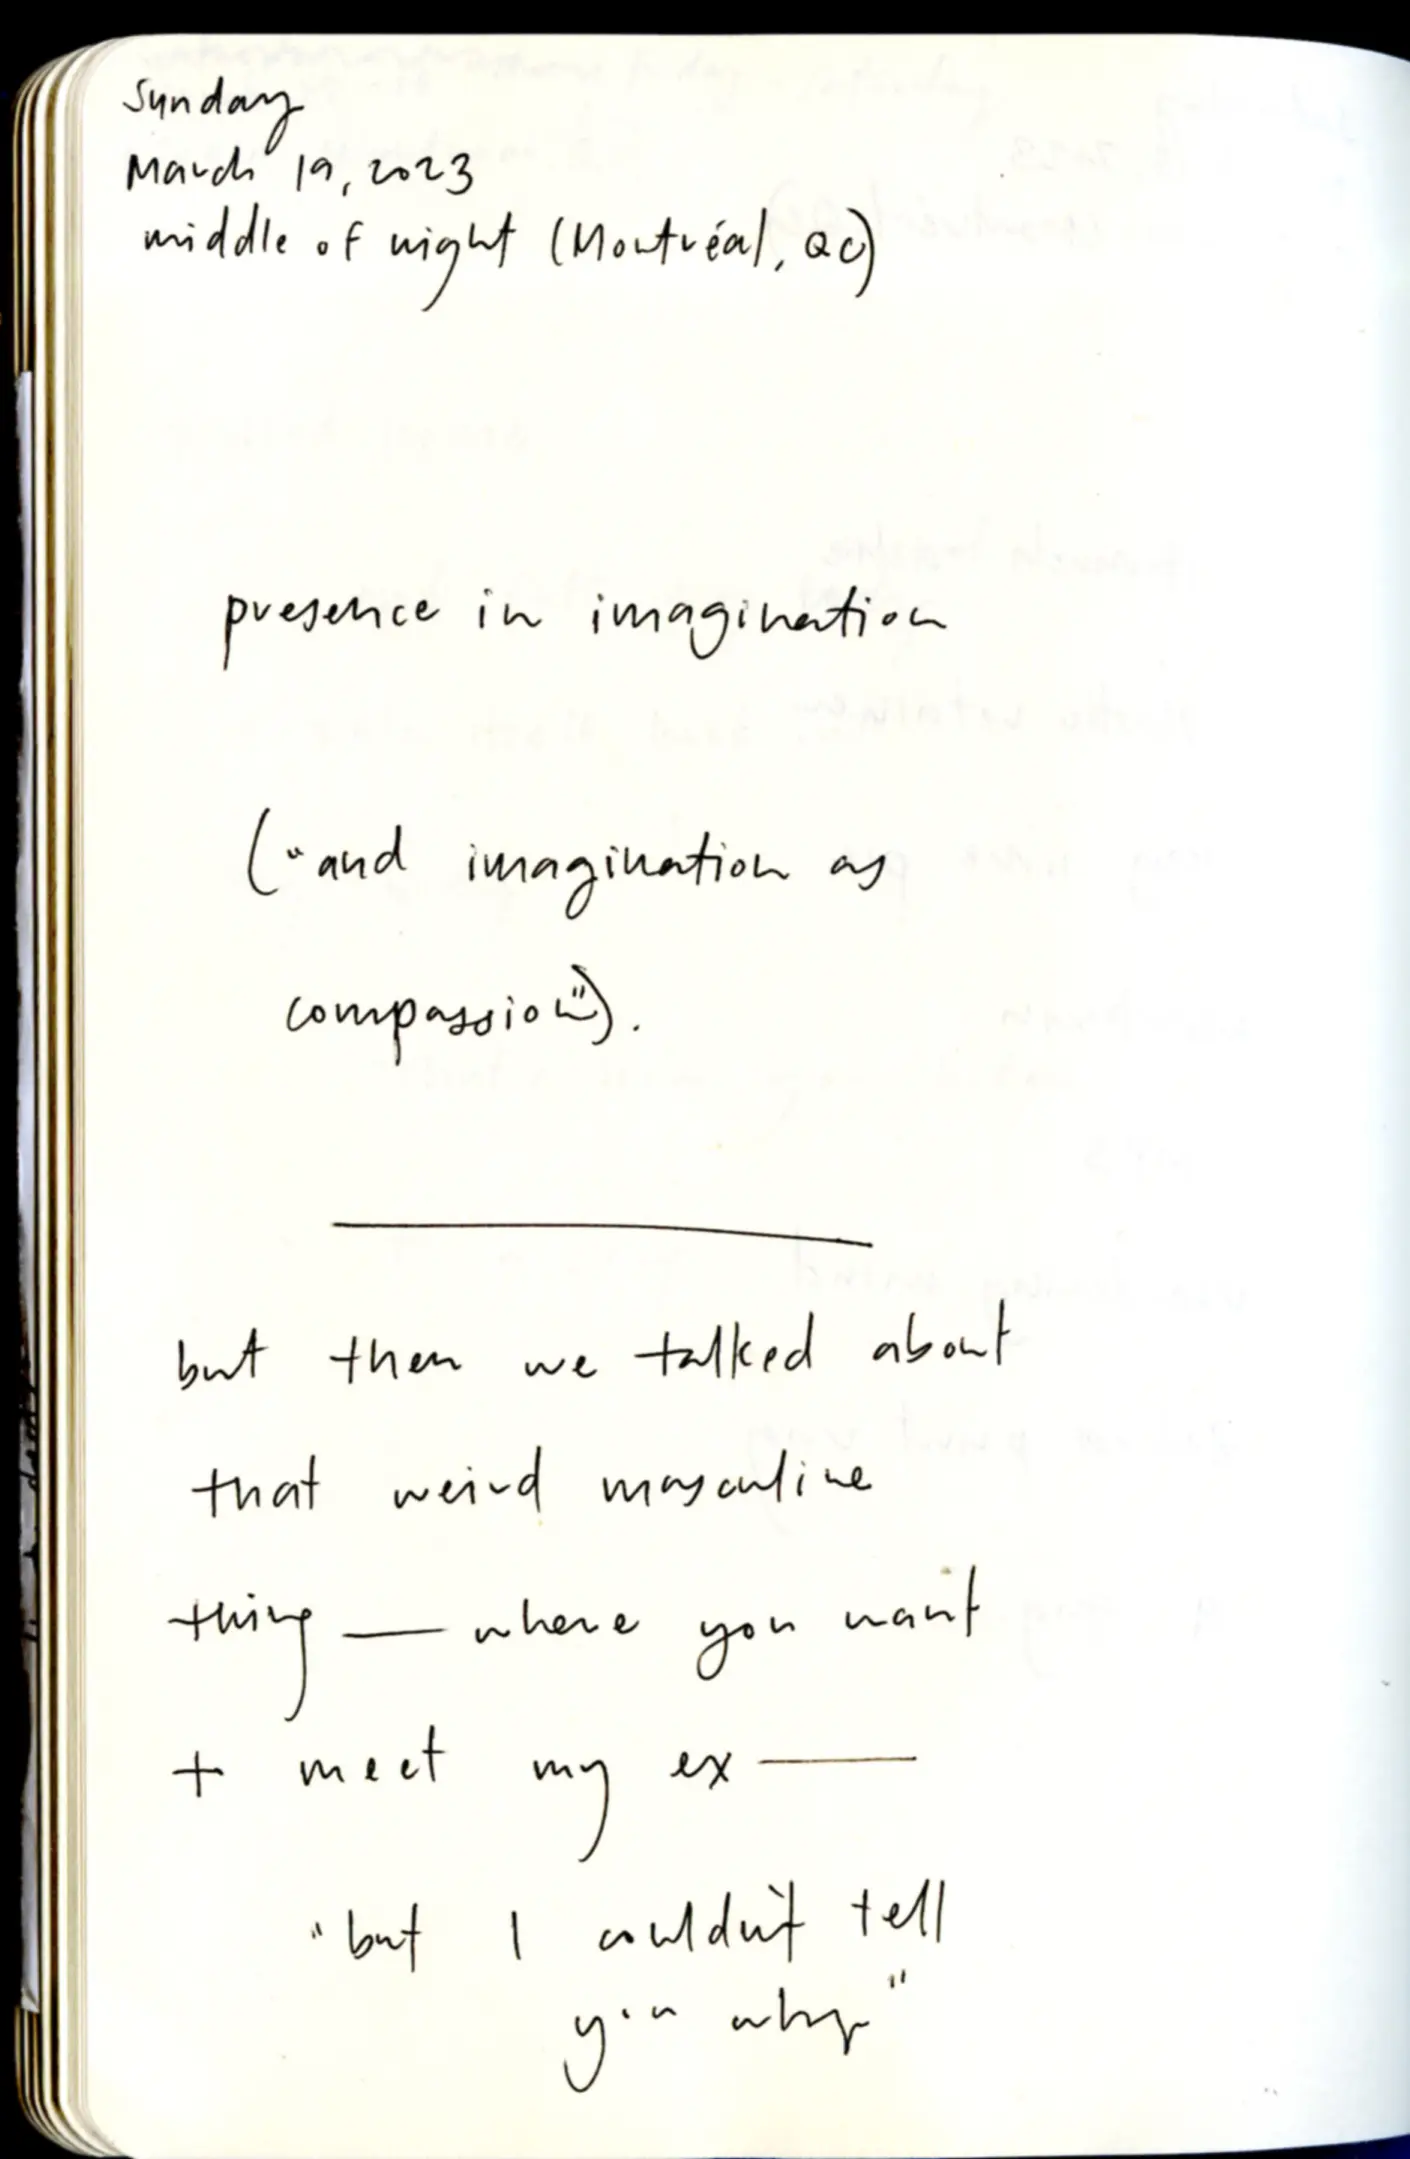 Sunday
March 19, 2023
middle of night (Montréal, QC)
presence in imagination
("and imagination as
compassion").
but then we talked about
that weird masculine
thing — where you want
+ meet my ex —
"but I couldn't tell
you why"